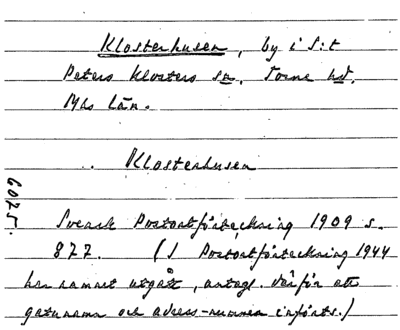 Klosterhusen, by i S:t
Peters Klosters sn, Torne hd,
Mhs län.
Klosterhusen
6075.
Svensk Postortförteckning 1909 s.
877. (I Postortförteckning 1944
har namnet utgått, antagl. därför att
gatunamn och adress-nummer införts.)